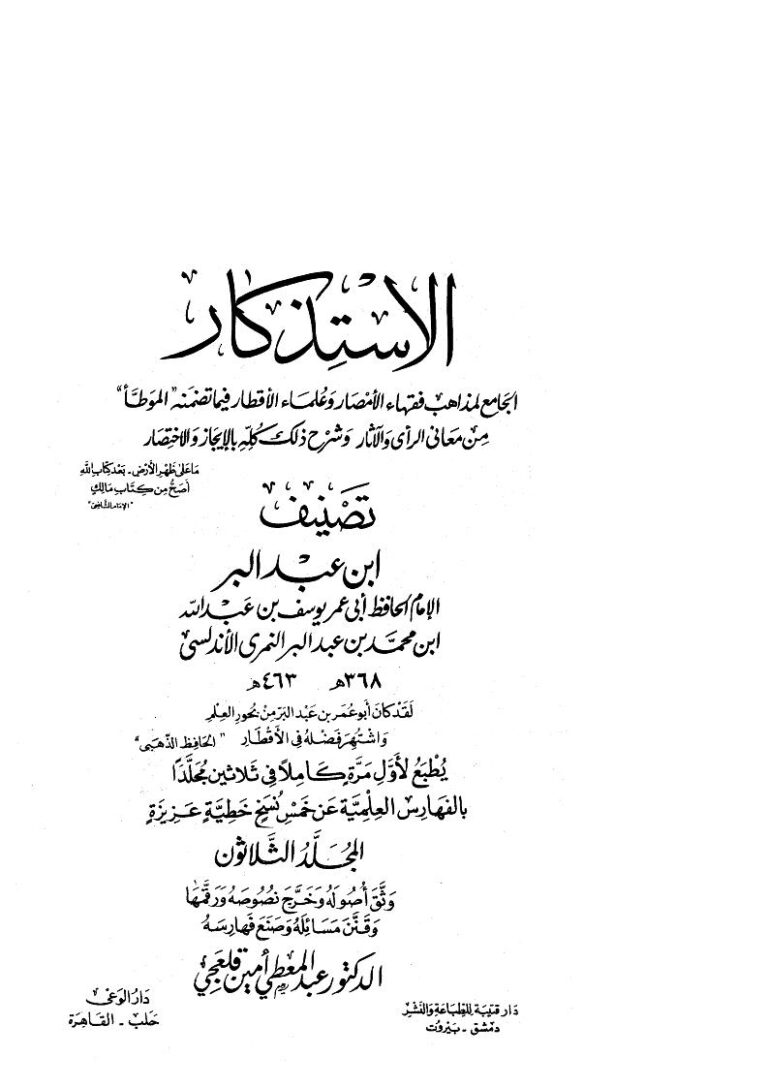 الاسْتِذكَار
الجَامع لمذَاهب فقهَاء الأمْصَار وَعُلمَاء الأقطَار فيمَا تضمَّنه "الموَطَّأ"
مِن مَعَاني الرأي وَالآثار وَشرْح ذَلك كُلِّهِ بالإيجَاز وَالاختِصَار
مَا عَلى ظَهْرِ الأَرْضِ - بَعْدَ كِتَابِ اللهِ
أَصَحُّ مِن كِتَابِ مَالِكٍ
"الإمَام الشَّافِعِيّ"
تَصْنِيف
ابن عَبْد البر
الإمَام الحَافظ أبي عمر يوسف بن عَبْد الله
ابن محمَّد بن عبد البر النمري الأندلسي
٣٦٨هـ ٤٦٣هـ
لَقَد كَانَ أبو عُمَر بن عَبْد البَر مِنْ بُحُورِ العِلْمِ
وَاشْتُهِرَ فَضْلهُ فِي الأَقْطَارِ "الحَافِظ الذَّهَبِي"
يُطْبَعُ لأوَّلِ مَرَّةٍ كَامِلاً فِي ثَلاثِين مُجَلَّدًا
بالفَهَارِسِ العِلْمِيَّةِ عَن خَمْسِ نُسَخٍ خَطِّيَّةٍ عَزِيزَةٍ
المُجَلَّدُ الثَّلاثون
وَثَّقَ أُصُولَهُ وَخَرَّجَ نُصُوصَهُ وَرَقَّمَهَا
وَقَنَّنَ مَسَائِلَهُ وَصَنَعَ فَهَارِسَهُ
الدكتور عبد المعطي أمين قلعجي
دَار قتيبَة للطِّبَاعَةِ وَالنَّشْرِ
دمَشق - بَيْروت
دَارُ الوَعي
حَلب - القَاهِرَة